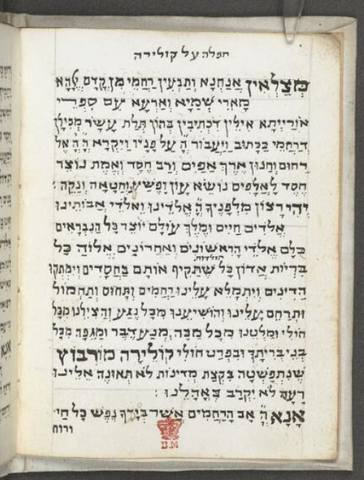 תפלה על קולירה
מצלאין אנחנא ותבעין רחמי מן קדם אלהא
מארי שמיא וארעא עם ספרי
אורייתא אילין דכתיבין בהון תלת עשר מכילן
דרחמי ככתוב ויעבור ה' על פניו ויקרא ה' ה' אל
רחום וחנון ארך אפים ורב חסד ואמת נוצר
חסד לאלפים נושא עון ופשע וחטאה ונקה:
יהי רצון מלפניך ה' אלדינו ואלדי אבותינו
אלדים חיים ומלך עולם יוצר כל הנבראים
כלם אלדי הראשונים ואחרונים אלוה כל
תולדות
בריות אדון כל שתקיף אותם בחסדים וימתקו
הדינים ויתמלא עלינו רחמים ותחוס ותחמול
ותרחם עלינו והושיענו מכל נגע והצילנו מכל
חולי ומלטנו מכל מכה, מנע דבר ומגפה מכל
בני בריתך ובפרט חולי קולירה מורבוץ
שנתפשטה בקצת מדינות לא תאונה אלינו
רעה לא יקרב באהלנו:
אנא ה' אב הרחמים אשר בידך נפש כל חי
ורוח
B.M